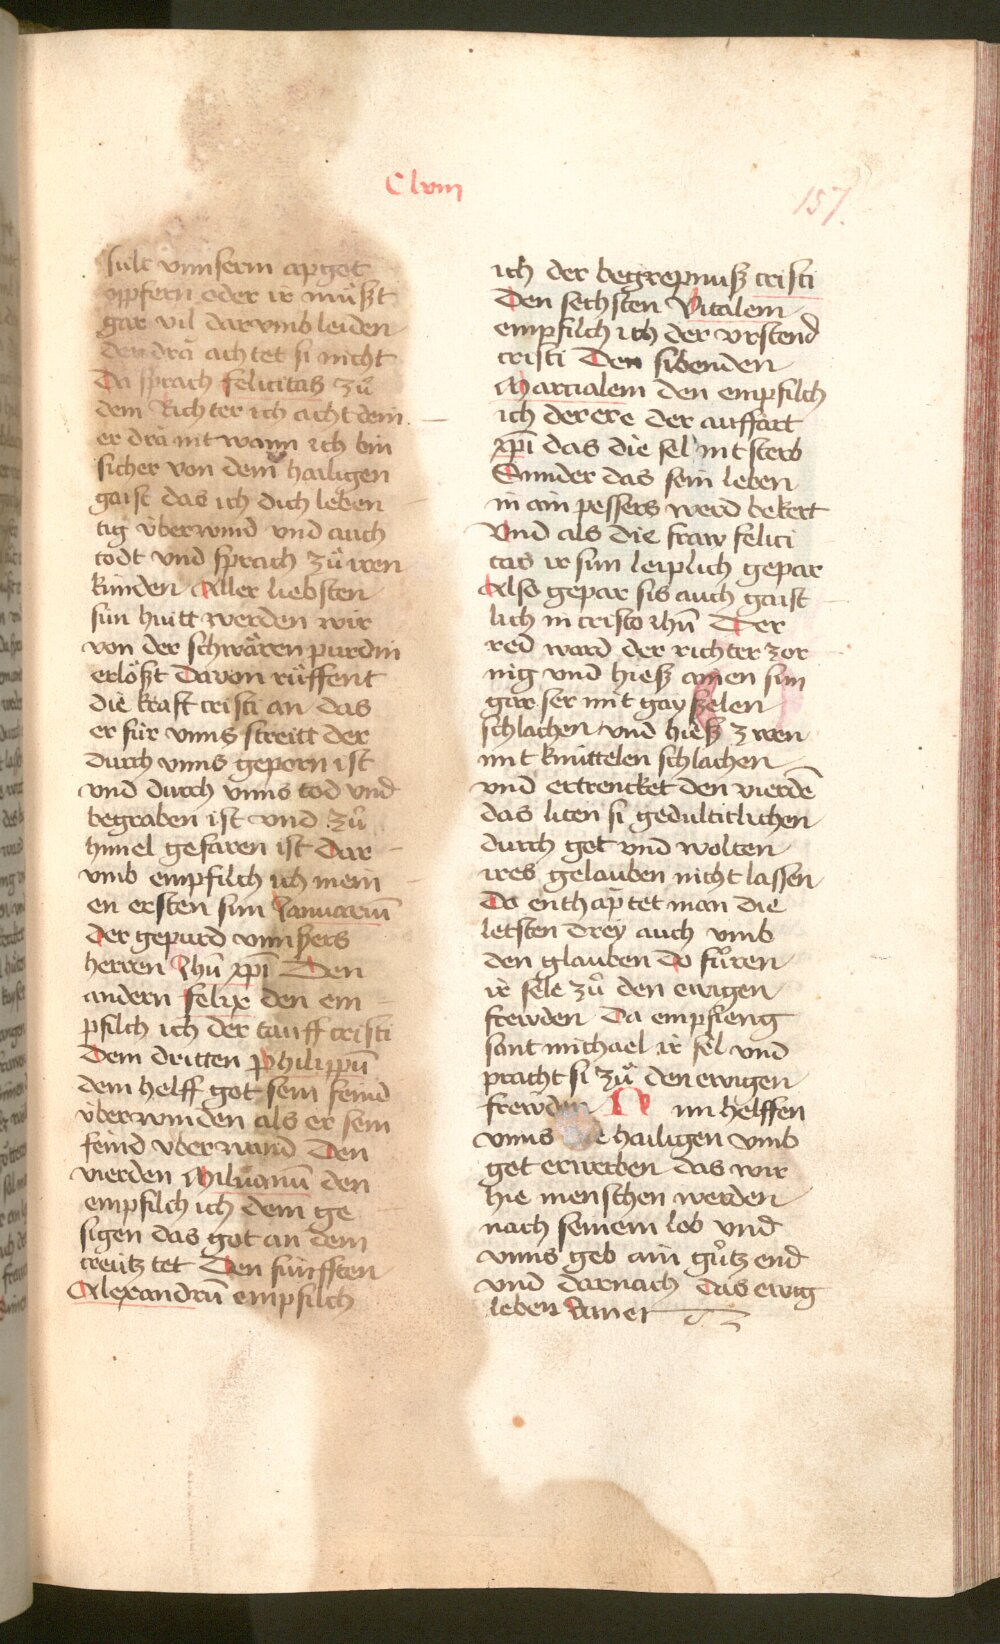 Clviij
157.
sült vnnserm apgot
oppfern oder ir müßt
gar vil darvmb leiden
den drä achtet si nicht
Da sprach felicitas zů
dem Richter ich acht dein
er drä nit wann ich bin
sicher von dem hailigen
gaist das ich dich leben
tig überwind vnd auch
todt vnd sprach zů iren
kinden Aller liebsten
sün huitt werden wir
von der schwären purdin
erlößt Davon rüffent
die kraft cristi an das
er für vnns streitt der
durch vnns geporn ist
vnd durch vnns tod vnd
begraben ist vnd zů
himel gefaren ist Dar
vmb empfilch ich mein
en ersten sun Januariū
Der gepurd vnnsers
herren Jhū xp̄i Den
andern felix den em
pfilch ich der tauff cristi
Dem dritten Philippū
dem helff got sein feind
überwinden als er sein
feind vberwand Den
vierden Siluanū den
empfilch ich dem ge
sigen das got an dem
creütz tet Den fünfften
Alexandrū empfilch
ich der begrepnuß cristi
Den sechsten Vitalem
empfilch ich der vrstend
cristi Den sibenden
Marcialem den empfilch
ich der ere der auffart
xp̄i das die sel nit sterb
Sunnder das sein leben
in ain pessers werd bekert
Vnd als die fraw felici
tas ir sün leiplich gepar
Also gepar sis auch gaist
lich in cristo Jhū Der
red ward der richter zor
nig vnd hieß ainen sun
gar ser mit gayßelen
schlachen vnd hieß zwen
mit knüttelen schlachen
vnd ertrencket den vierdē
das liten si gedultitlichen
durch got vnd wolten
ires gelauben nicht lassen
Do enthaptet man die
letsten drey auch vmb
den glauben Do fůren
ir sele zů den ewigen
frewden Da empfieng
sant michael ir sel vnd
pracht si zů den ewigen
frewden Nun helffen
vnns die hailigen vmb
got erwerben das wir
hie menschen werden
nach seinem lob vnd
vnns geb ain gůtz end
vnd darnach das ewig
leben Amen